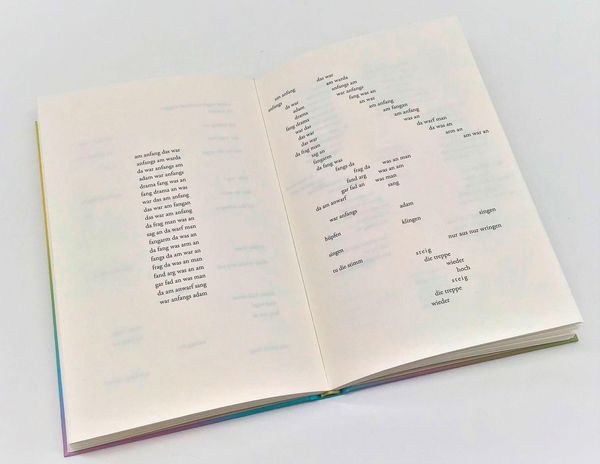 am anfang das war
anfangs am warda
da war anfangs am
adam war anfangs
drama fang was an
fang drama an was
war das am anfang
das war am fangan
das war am anfang
da frag man was an
sag an da warf man
fangarm da was an
da fang was arm an
fangs da am war an
frag da man was an
fand arg was an am
gar fad an was man
da am anwarf sang
war anfangs adam
das war
am anfang
am warda
anfangs
da war
anfangs am
adam
war anfangs
drama
fang was an
fang drama
an was
war das
am anfang
das war
am fangan
das war
am anfang
da frag man
was an
sag an
da warf man
fangarm
da was an
da fang was
arm an
fangs da
am war an
frag da
was an man
fand arg
was an am
gar fad an
was man
da am anwarf
sang
war anfangs
adam
singen
klingen
hüpfen
nur aus nur wringen
singen
steig
die treppe
to die stimm
wieder
hoch
steig
die treppe
wieder